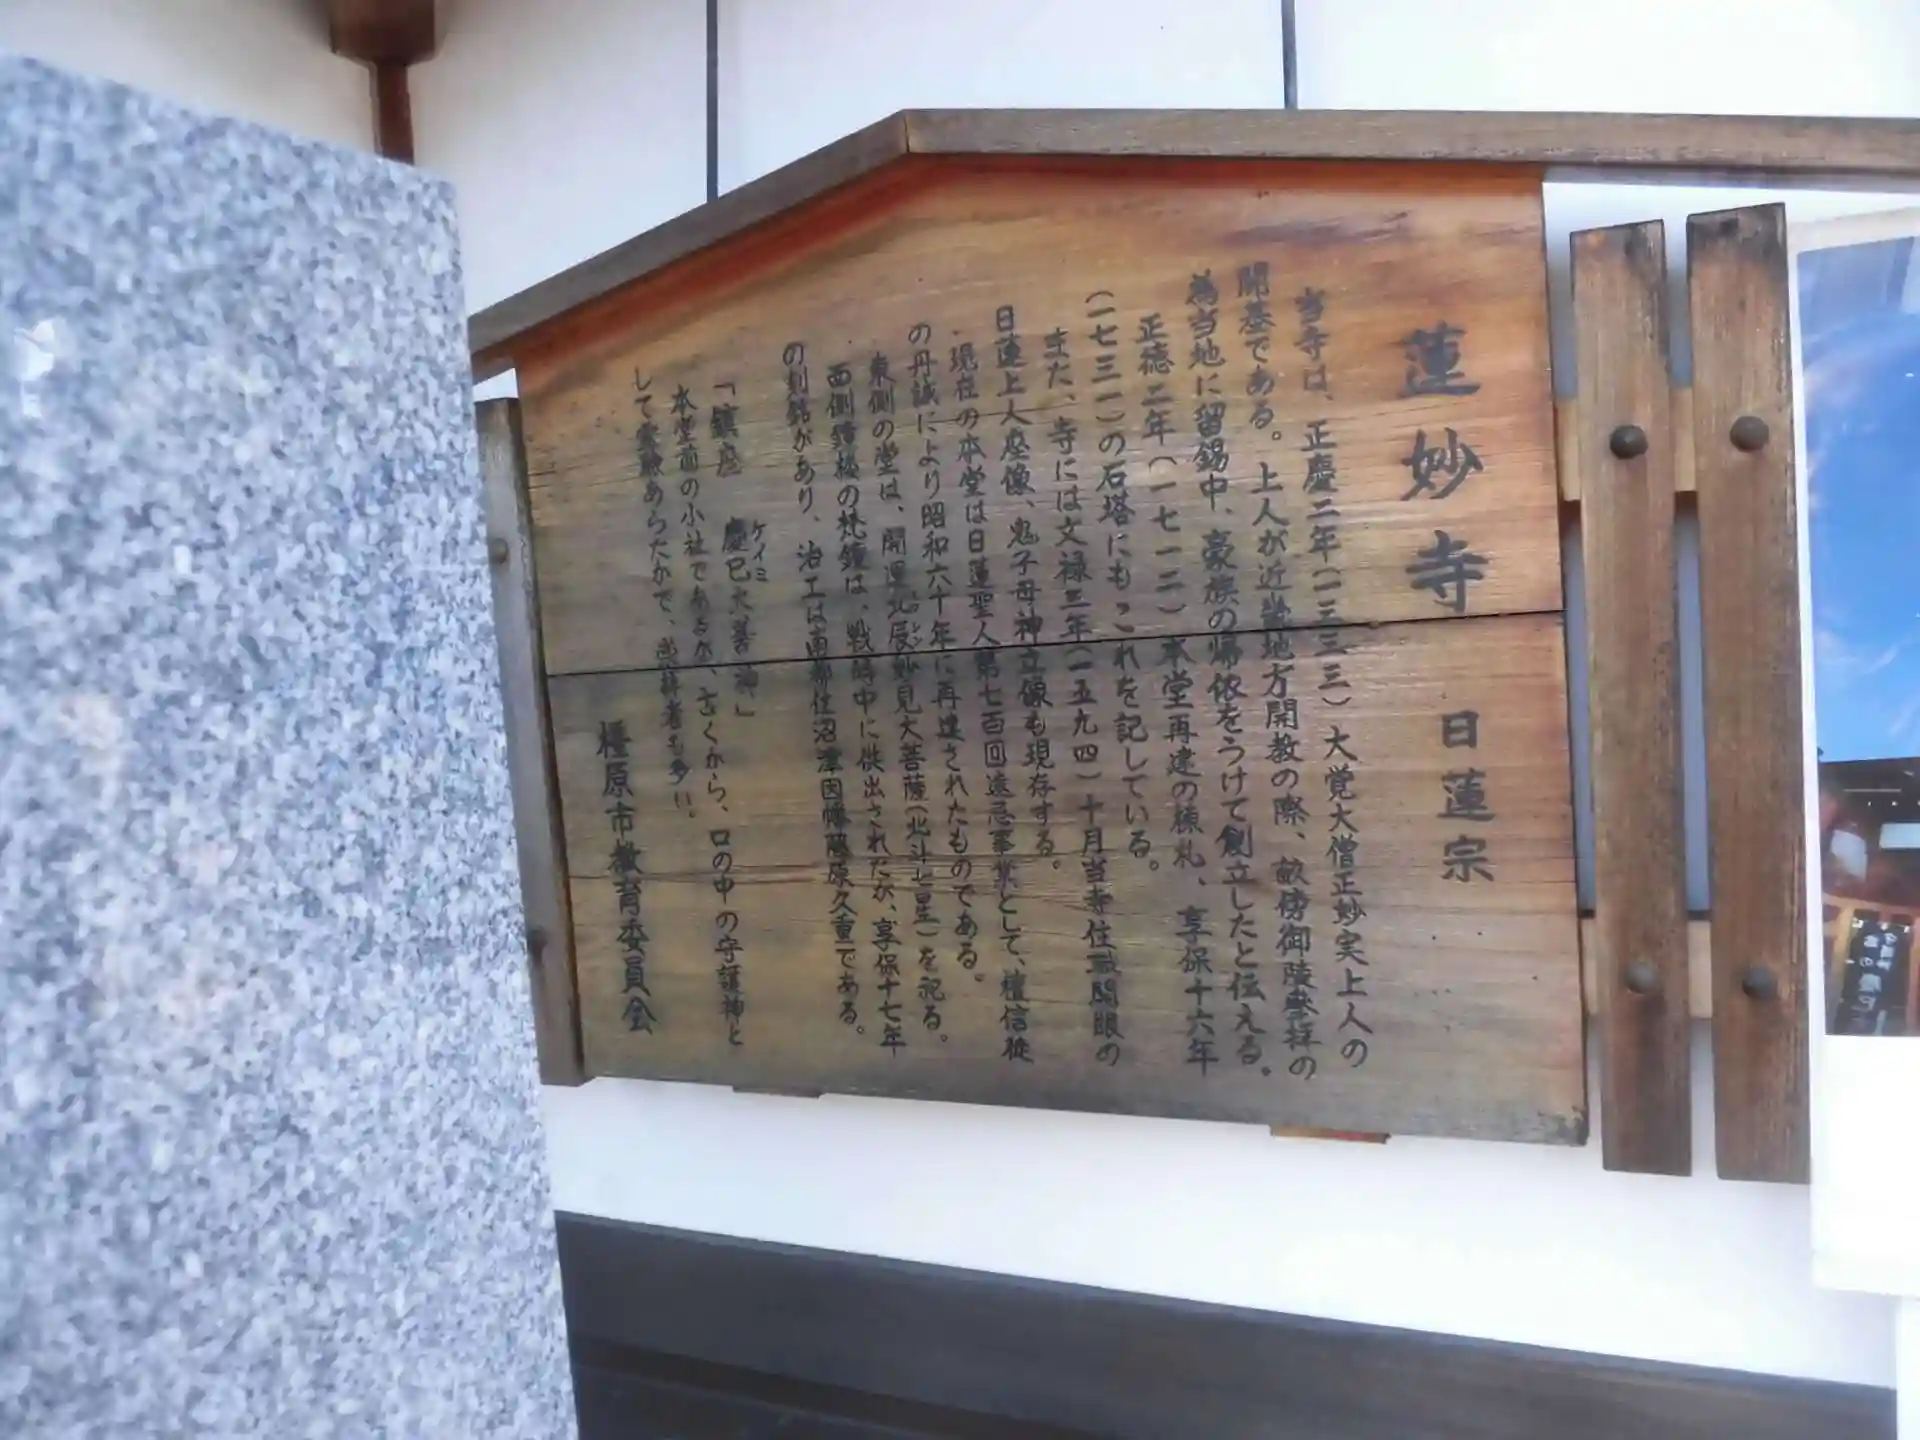 蓮妙寺 日蓮宗
当寺は、正慶二年(一三三三)大覚大僧正妙実上人の
開基である。上人が近畿地方開教の際、畝傍御陵参拝の
為当地に留錫中、豪族の帰依をうけて創立したと伝える。
正徳二年(一七一二)本堂再建の棟札、享保十六年
(一七三一)の石塔にもこれを記している。
また、寺には文禄三年(一五九四)十月当寺住職開眼の
日蓮上人座像、鬼子母神立像も現存する。
現在の本堂は日蓮聖人第七百回遠忌事業として、檀信徒
の丹誠により昭和六十年に再建されたものである。
東側の堂は、開運北辰妙見大菩薩(北斗七星)を祀る。
西側鐘楼の梵鐘は、戦時中に供出されたが、享保十七年
の刻銘があり、治工は南都住沼津因幡藤原久重である。
「鎮座 慶巳大善神」
ケイミ
本堂前の小社であるが、古くから、口の中の守護神と
して霊験あらたかで、参拝者も多い。
橿原市教育委員会